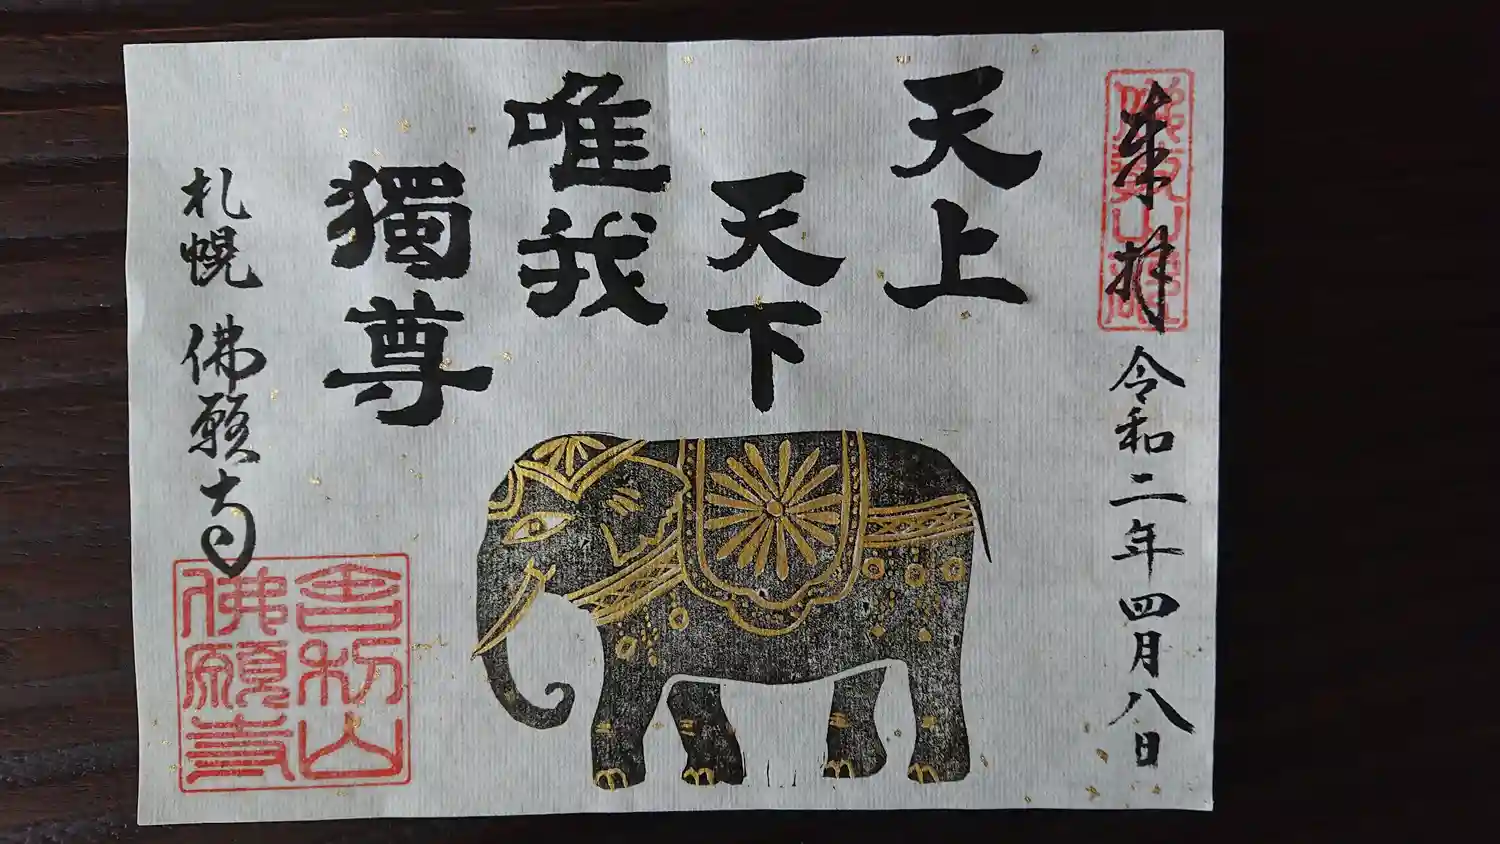 来拝
令和二年四月八日
天上
天下
唯我
獨尊
札幌 佛願寺
舎利山
佛願寺